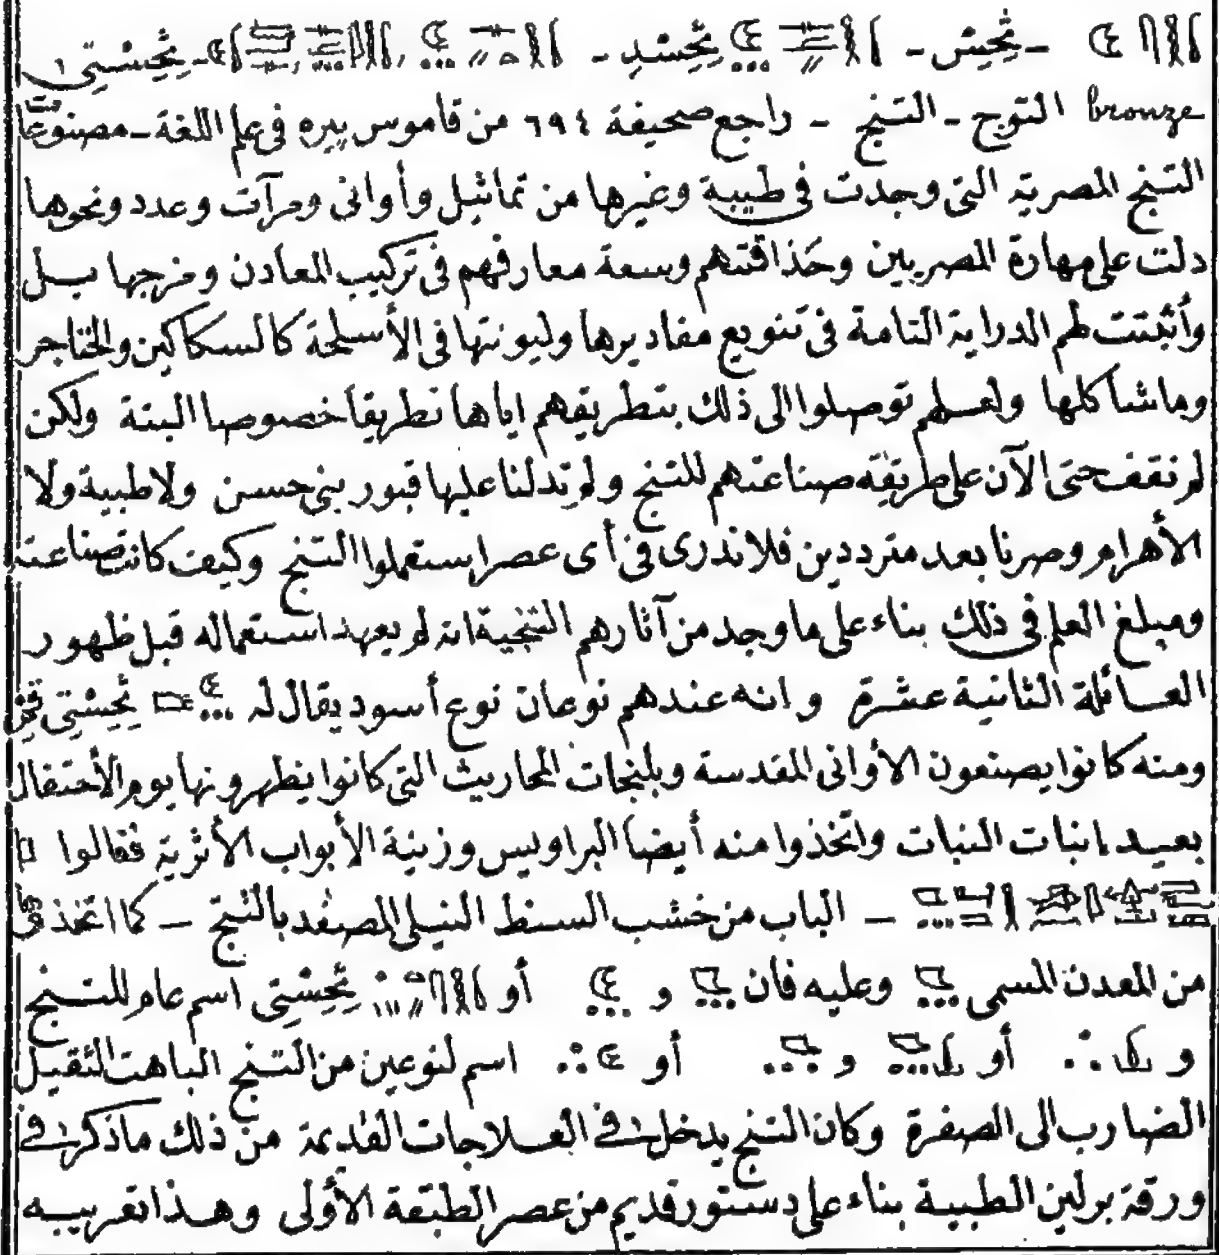 ـ ثُحِسْ ـ ثُحِسْدِ ـ ـ ثُحِسْتِى ١
bronze التوج ـ التنج ـ راجع صحيفة ٦٩٤ من قاموس بيره فى علم اللغة ـ مصنوعات
التنج المصرية التى وجدت فى طيبة وغيرها من تماثيل وأوانى ومرآت وعدد ونحوها
دلت على مهارة المصريين وحذاقتهم وسعة معارفهم فى تركيب المعادن ومزجها بـل
وأثبتت لهم الدراية التامة فى تنويع مقاديرها وليونتها فى الأسلحة كالسكاكين والخناجر
وماشاكلها ولعـلهم توصلوا الى ذلك بتطريقهم اياها تطريقا خصوصيا البتة ولكن
لم نقف حتى الآن على طريقة صناعتهم للتنج ولم تدلنا عليها قبور بنى حسن ولا طيبة ولا
الأهرام وصرنا بعد مترددين فلا ندرى فى أى عصر استعملوا التنج وكيف كانت صناعته
ومبلغ العلم فى ذلك بناء على ما وجد من آثارهم التنجية انه لم يعهد استعماله قبل ظهور
العـائلة الثانية عشرة وانه عندهم نوعان نوع أسود يقال له ثُحِسْتِى
ومنه كانوا يصنعون الأوانى المقدسة وبلنجات المحاريث التى كانوا يظهرونها يوم الأحتفال
بعيد انبات النبات واتخذوا منه أيضا البراويس وزينة الأبواب الأثرية فقالوا
ـ الباب من خشب السنط النيلى المصفد بالتنج ـ كما اتخذ
من المعدن المسمى وعليه فان و أو ثُحِسْتِى اسم عام للتـنج
و أو و أو اسم لنوعين من التنج الباهت الثقيل
الضارب الى الصفرة وكان التنج يدخل فى العـلاجات القديمة من ذلك ما ذكر فى
ورقة برلين الطبية بناء على دستور قديم من عصر الطبقة الأولى وهـذا تعريبـه